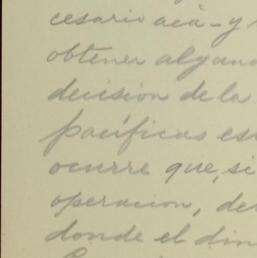 cesario acá - y
obtener alguna
decisión de la
pacíficas es
ocurre que, si
operacion, de
donde el din